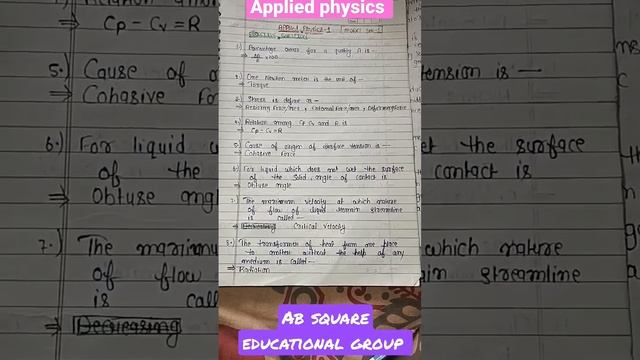 Applied physics
Applied Physics-1
1.) Percentage error for a quantity A is-
2.) One Newton meter is the unit of-
⇒ Torque
3.) Stress is define as-
⇒ Restoring force/Area, External force/Area,
4.) Relation among Cp Cv and R is
⇒ Cp - Cv = R
5.) Cause of origin of surface tension is-
⇒ Cohasive Force
6.) For liquid which does not wet the surface
of the solid, angle of contact is
⇒ Obtuse angle
7.) The maximum velocity at which nature
of flow of liquid remain streamline
is called-
⇒ Decreasing Critical velocity
8.) The transformer of heat from one place
to another without the help of any
medium is called-
⇒ Radiation
Cp - Cv = R
5.) Cause of o
tension is —
⇒ Cohasive Fo
6.) For liquid
et the surface
of the
contact is
⇒ Obtuse angl
7.) The maximu
which nature
of flow
in streamline
is call
⇒ Decreasing
AB SQUARE
EDUCATIONAL GROUP